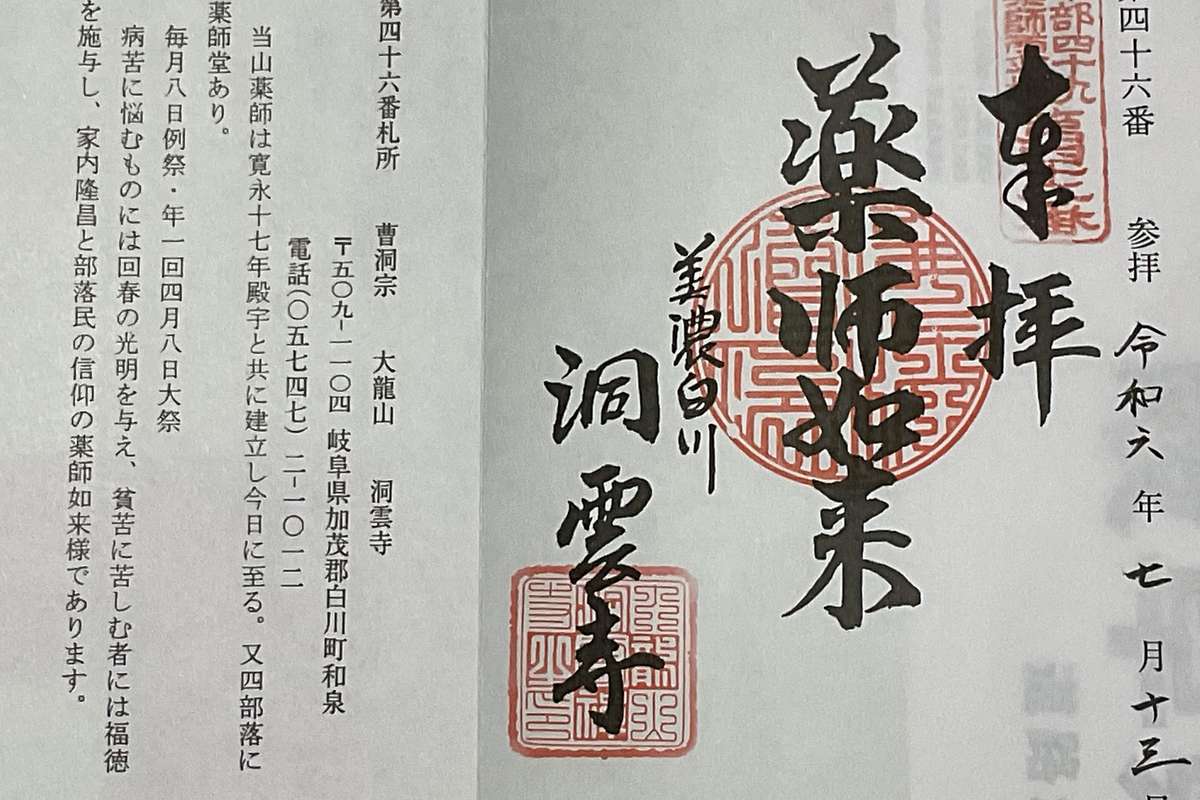 四十六番 参拝 令和六年七月十三日
奉拝
薬師如来
美濃白川
洞雲寺
第四十六番札所 曹洞宗 大龍山 洞雲寺
〒五〇九-一一〇四 岐阜県加茂郡白川町和泉
電話(〇五七四七)二-一〇一二
当山薬師は寛永十七年殿宇と共に建立し今日に至る。又四部落に
薬師堂あり。
毎月八日例祭・年一回四月八日大祭
病苦に悩むものには回春の光明を与え、貧苦に苦しむ者には福徳
を施与し、家内隆昌と部落民の信仰の薬師如来様であります。